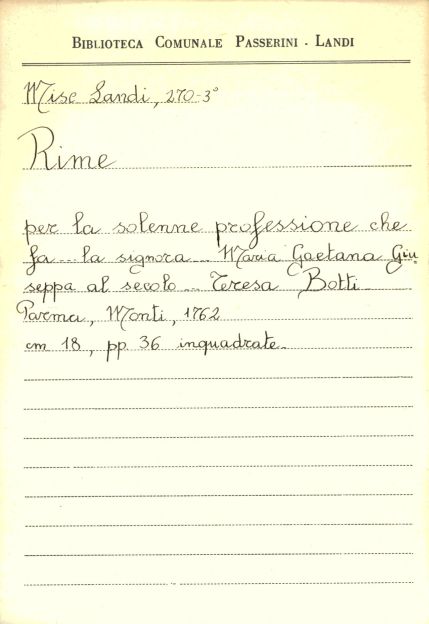 BIBLIOTECA COMUNALE PASSERINI - LANDI
Misc Landi, 270-3°
Rime
per la solenne professione che
fa ... la signora ... Maria Gaetana Giu
seppa al secolo ... Teresa Botti -
Parma, Monti, 1762
cm 18, pp 36 inquadrate.